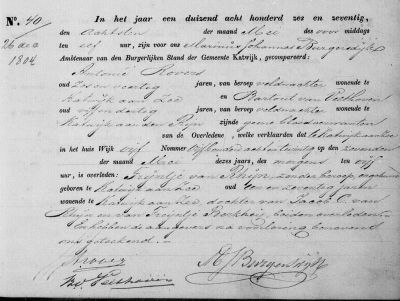 No. 40
26 dec
1804
In het jaar een duizend acht honderd zes en zeventig,
den achtsten der maand Mei des voor middags
ten elf ure, zijn voor ons Marinus Johannes Burgersdijk
Ambtenaar van den Burgerlijken Stand der Gemeente Katwijk, gecompareerd:
Antonie Rovers
oud zes en veertig jaren, van beroep veldwachter wonende te
Katwijk aan Zee en
oud jaren, van beroep veldwachter wonende te
Katwijk aan den Rijn zijnde geene bloedverwanten
van de Overledene, welke verklaarden dat te Katwijk aan Zee
in het huis Wijk vijf Nommer op den zevenden
der maand Mei dezes jaars, des morgens ten vijf
ure, is overleden: van Rhijn, zonder beroep, ongehuwd
geboren te Katwijk aan Zee oud een en zeventig jaren
wonende te Katwijk aan Zee, dochter van Jacob C. van
Rhijn en van beiden overleden.
En hebben de aangevers na voorlezing benevens
ons geteekend.
Rovers
MJ Burgersdijk